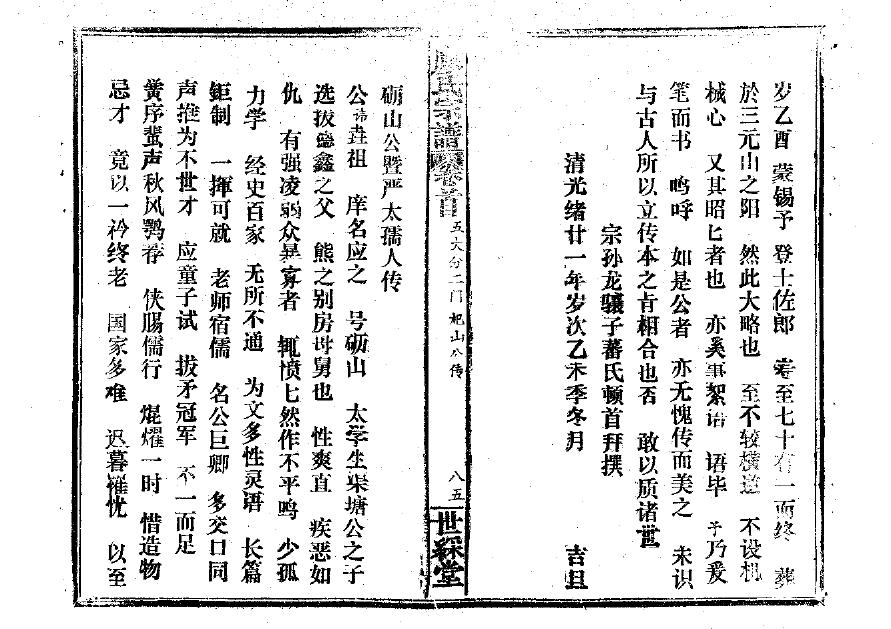 岁乙酉 蒙锡予 登士佐郎 寿至七十有一而终 葬
於三元山之阳 然此大略也 至不较横逆 不设机
械心 又其昭匕者也 亦奚事絮语 语毕 予乃爰
笔而书 呜呼 如是公者 亦无愧传而美之 未识
与古人所以立传本之肯相合也否 敢以质诸世
宗孙龙骧子蕃氏顿首拜撰
清光绪廿一年岁次乙未季冬月 吉旦
氏宗谱 卷首
五大分二门 屺山公传
八五
世䌽堂
砺山公暨严太孺人传
公讳垚祖 庠名应之 号砺山 太学生渠塘公之子
选拔德鑫之父 熊之别房母舅也 性爽直 疾恶如
仇 有强凌弱众暴寡者 辄愤匕然作不平鸣 少孤
力学 经史百家 无所不通 为文多性灵语 长篇
钜制 一挥可就 老师宿儒 名公巨卿 多交口同
声推为不世才 应童子试 拔矛冠军 不一而足
黉序蜚声秋风鹗荐 侠赐儒行 焜耀一时 惜造物
忌才 竟以一衿终老 国家多难 迟暮罹忧 以至